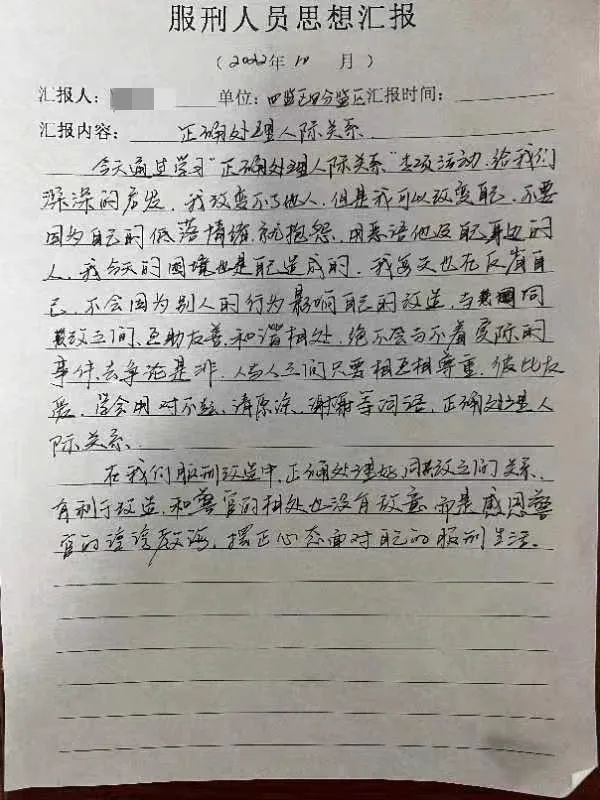 服刑人员思想汇报
（2022年10月）
汇报人： 单位：四监区四分监区汇报时间：
汇报内容： 正确处理人际关系
今天通过学习“正确处理人际关系”专项活动，给我们
深深的启发，我改变不了他人，但是我可以改变自己，不要
因为自己的低落情绪，就抱怨，用恶语他及自己身边的
人，我今天的困境也是自己造成的，我每天也在反省自
己，不会因为别人的行为影响自己的改造，与同
改之间，互助友善，和谐相处，绝不会为不着实际的
事件，去争论是非，人与人之间只要相互相尊重，彼此友
爱，学会用对不起、请原谅、谢谢等词语，正确处理人
际关系。
在我们服刑改造中，正确处理好，同改之间关系，
有利于改造，和警官的相处也没有敌意，而是感恩警
官的谆谆教诲，摆正心态面对自己的服刑生活。